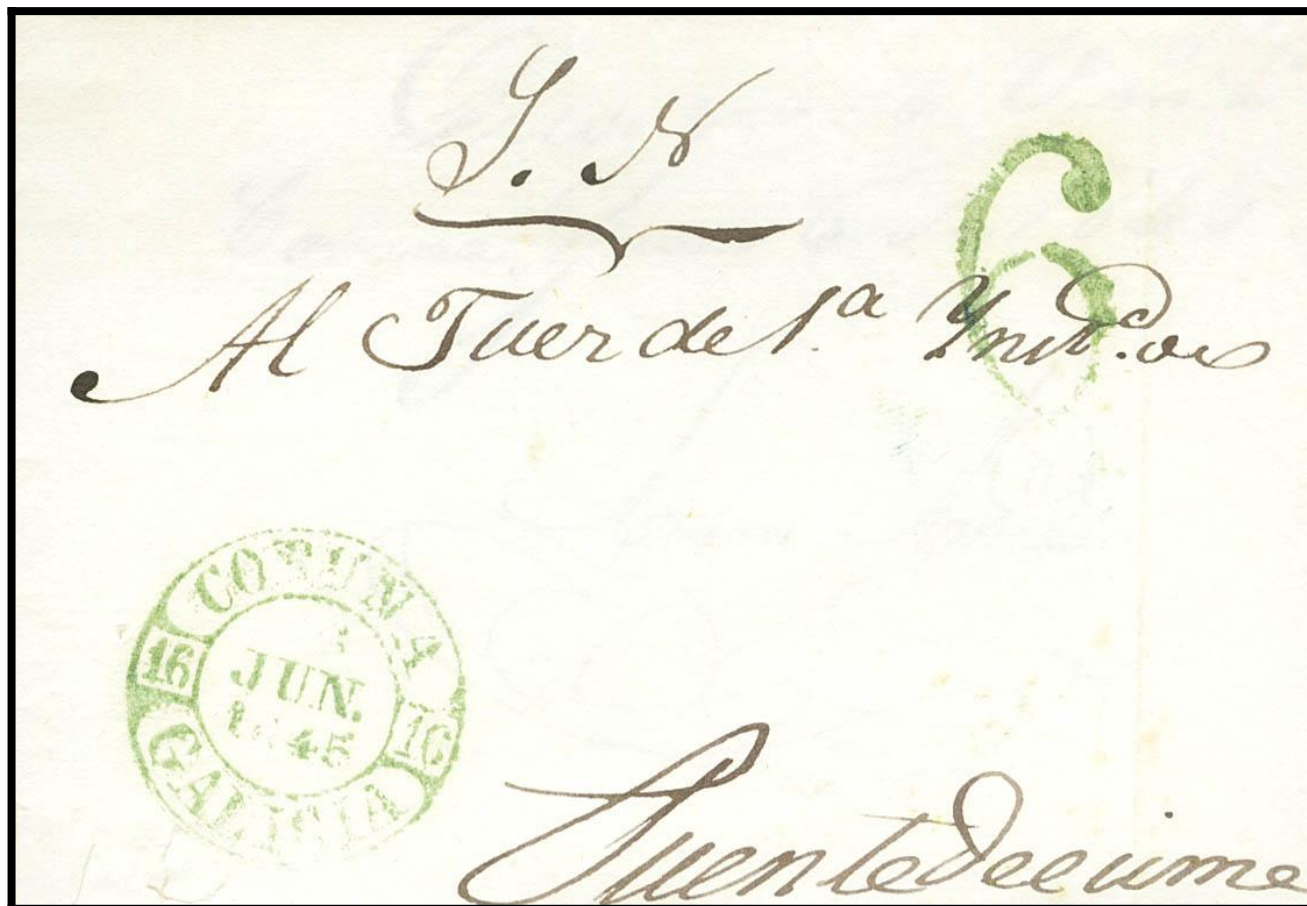 S. N
6
Al Juez de 1.ª Ynst.ª de
CORUNA
16 JUN. 16
1845
GALICIA
Puentedeeume